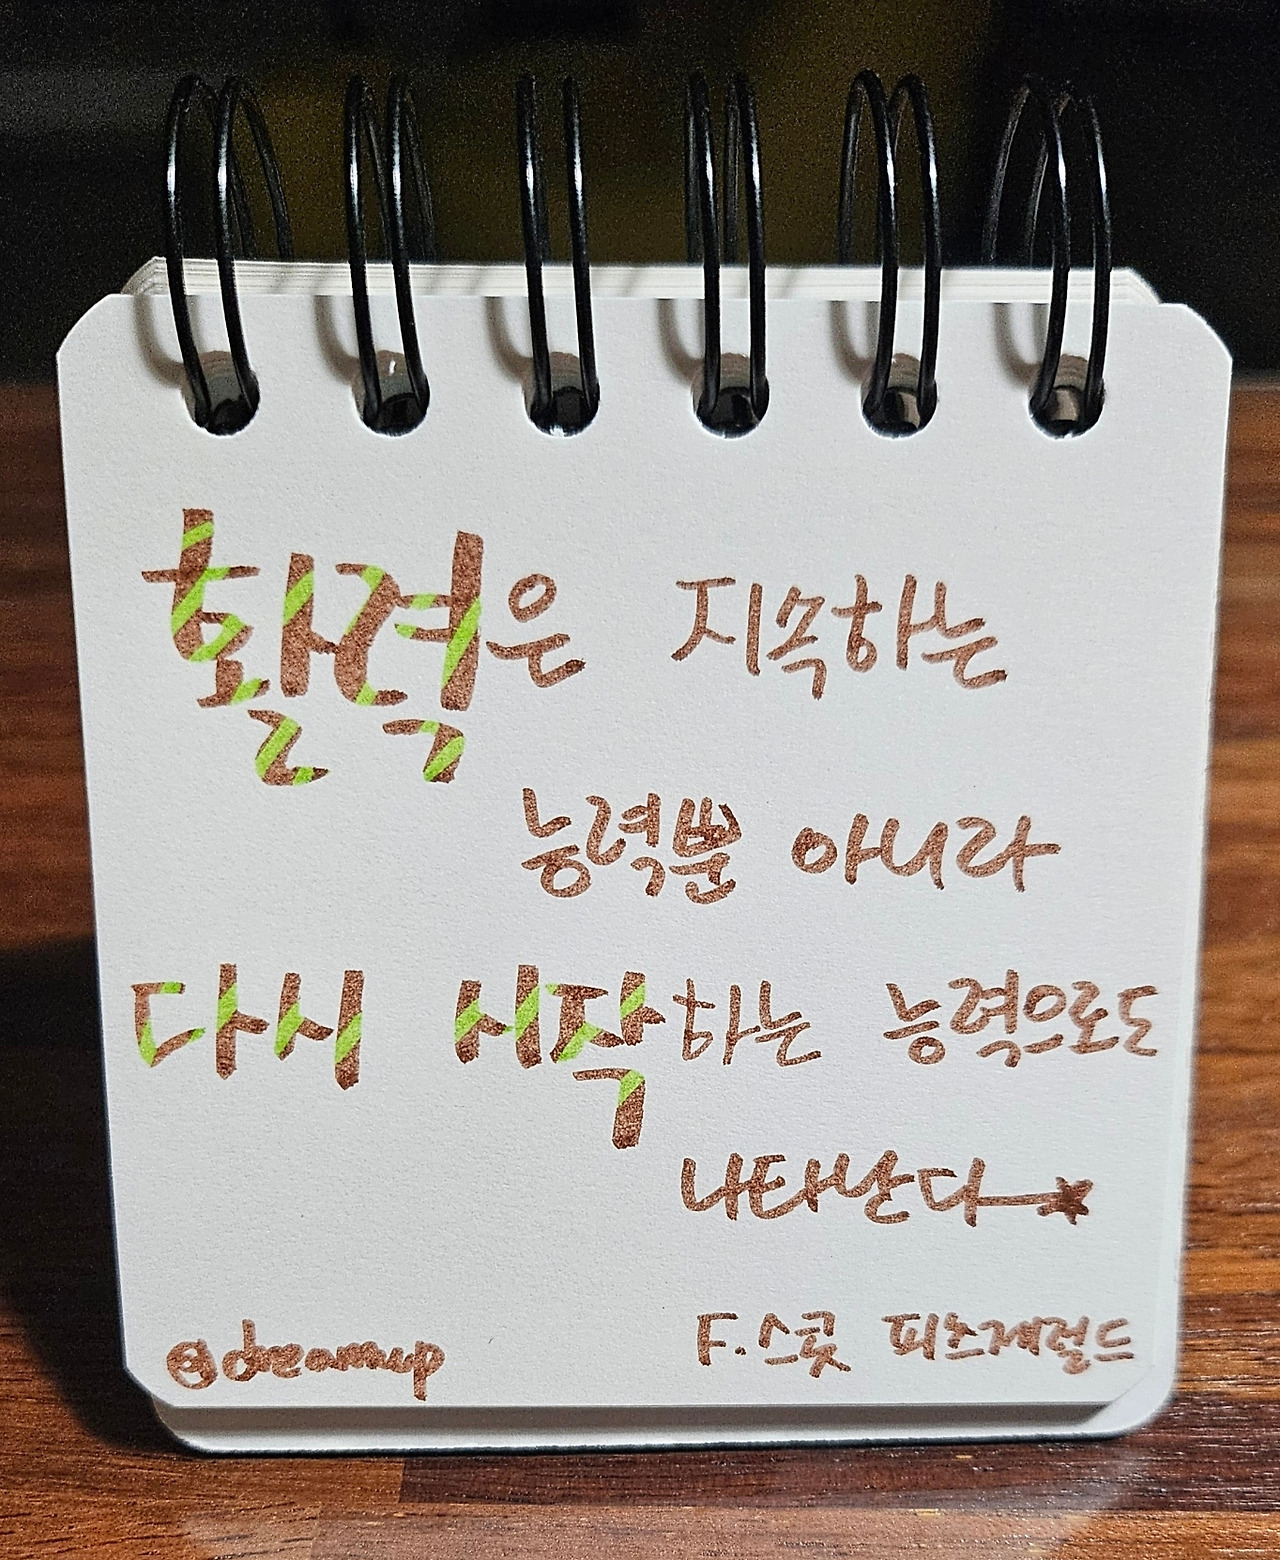 활력은 지속하는
능력뿐 아니라
다시 시작하는 능력으로도
나타난다
@dreamup
F.스콧 피츠제럴드